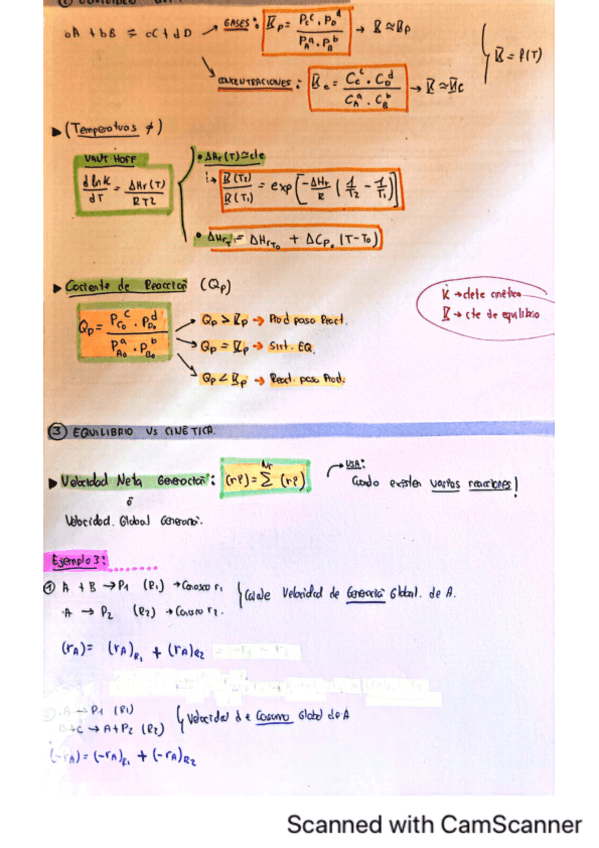 aA + bB ⇌ cC + dD → GASES: K_p = P_C^c · P_D^d / P_A^a · P_B^b → K ≃ K_p
CONCENTRACIONES: K_c = C_C^c · C_D^d / C_A^a · C_B^b → K ≃ K_c
K = f(T)
▶ (Temperaturas ≠)
VAN'T HOFF
d ln K / dT = ΔHr (T) / R T2
• ΔHr (T) ≃ cte
K(T2) / K(T1) = exp [ -ΔHr / R ( 1/T2 - 1/T1 ) ]
• ΔHr_T = ΔHr_T0 + ΔCp. (T-T0)
▶ Cociente de Reacción (Qp)
Qp = P_C0^c · P_D0^d / P_A0^a · P_B0^b
Qp > Kp → Prod paso React.
Qp = Kp → Sist. EQ.
Qp < Kp → React. paso Prod.
K → cte cinética
K → cte de equilibrio
③ EQUILIBRIO VS CINÉTICA.
▶ Velocidad Neta Generación: (rj) = Σ^Nr (rj)
→ USA:
Cuando existen varias reacciones!
ó
Velocidad. Global Generación.
Ejemplo 3:
① A + B → P1 (R1) → Conozco r1
· A → P2 (R2) → Conozco r2.
Calcule Velocidad de Generación Global. de A.
(rA) = (rA)R1 + (rA)R2
② · A → P1 (R1)
B + C → A + P2 (R2)
Velocidad de Consumo Global de A
(-rA) = (-rA)R1 + (-rA)R2
Scanned with CamScanner